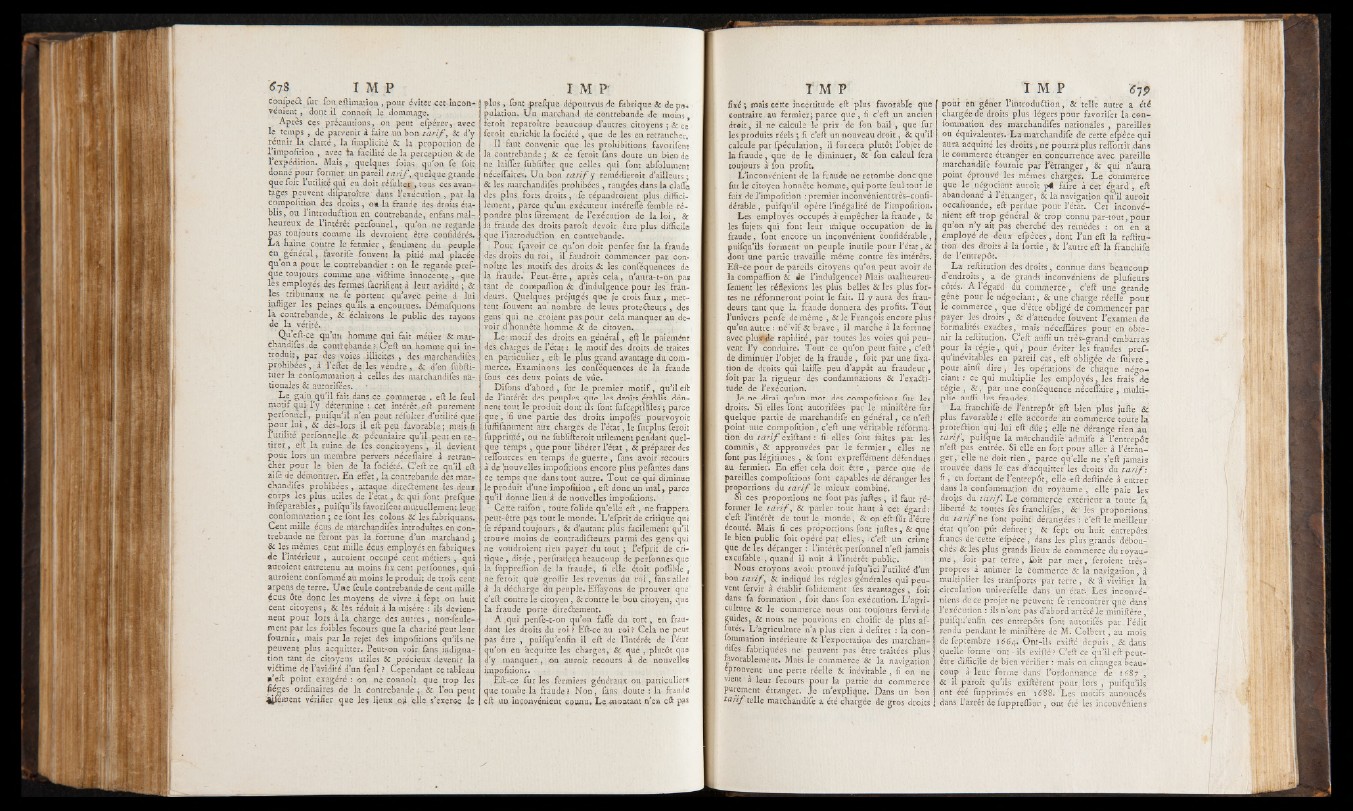 678 I M P
conspect sur son estimation, pour éviter cet incon-
vénient, dont il connoît le dommage.
Après ces précautions, on peut espérer, avec
le temps, de parvenir à faire un bon tarif, & d'y
réunir la clarté, la simplicité & la proportion de
l'imposition, avec la facilité de la perception & de
l'expédition. Mais, quelques soins qu'on se soit
donné pour former un pareil tarif, quelque grande
que soit l'utilité qui en doit résulter, tous ces avan-
tages peuvent disparoître dans l'exécution, par la
composition des droits, ou la fraude des droits éta-
blis, ou l'introduction en contrebande, enfans mal-
heureux de l'intérêt personnel, qu'on ne regarde
pas toujours comme ils devroient être considérés.
La haine contre le fermier, sentiment du peuple
en général, favorise souvent la pitié mal placée
qu'on a pour le contrebandier : on le regarde pres-
que toujours comme une victime innocente, que
les employés des fermes sacrifient à leur avidité ; &
les tribunaux ne se portent qu'avec peine à lui
infliger les peines qu'ils a encourues. Démasquons
la contrebande, & éclairons le public des rayons
de la vérité.
Qu'est-ce qu'un homme qui fait métier & mar-
chandises de contrebande ? C'est un homme qui in-
troduit, par des voies illicites, des marchandises
prohibées, à l'effet de les vendre, & d'en substi-
tuer la consommation à celles des marchandises na-
tionales & autorisées.
Le gain qu'il fait dans ce commerce, est le seul
motif qui l'y détermine : cet intérêt est purement
personnel, puisqu'il n'en peut résulter d'utilité que
pour lui, & dès-lors il est peu favorable ; mais si
l'utilité personnelle & pécuniaire qu'il peut en re-
tirer, est la ruine de ses concitoyens, il devient
pour lors un membre pervers nécessaire à retran-
cher pour le bien de la société. C'est ce qu'il est
aisé de démontrer. En effet, la contrebande des mar-
chandises prohibées, attaque directement les deux
corps les plus utiles de l'état, & qui sont presque
inséparables, puisqu'ils favorisent mutuellement leur
consommation ; ce sont les colons & les fabriquans.
Cent mille écus de marchandises introduites en con-
trebande ne feront pas la fortune d'un marchand ;
& les mêmes cent mille écus employés en fabriques
de l'intérieur, auroient occupé cent métiers, qui
auroient entretenu au moins six cent personnes, qui
auroient consommé au moins le produit de trois cent
arpens de terre. Une seule contrebande de cent mille
écus ôte donc les moyens de vivre à sept ou huit
cent citoyens, & les réduit à la misère : ils devien-
nent pour lors à la charge des autres, non-seule-
ment par les foibles secours que la charité peut leur
fournir, mais par le rejet des impositions qu'ils ne
peuvent plus acquitter. Peut-on voir sans indigna-
tion tant de citoyens utiles & précieux devenir la
victime de l'avidité d'un seul ? Cependant ce tableau
n'est point exagéré : on ne connoît que trop les
siéges ordinaires de la contrebande ; & l'on peut
aisément vérifier que les lieux où elle s'exerce le
I M P
plus, sont presque dépourvus de fabrique & de po-
pulation. Un marchand de contrebande de moins,
feroit reparoître beaucoup d'autres citoyens ; & ce
seroit enrichir la société, que de les en retrancher.
Il faut convenir que les prohibitions favorisent
la contrebande ; & ce seroit sans doute un bien de
ne laisser subsister que celles qui sont absolument
nécessaires. Un bon tarif y remédieroit d'ailleurs ;
& les marchandises prohibées, rangées dans la classe
des plus forts droits, se répandroient plus diffici-
lement, parce qu'un exécuteur intéressé semble ré-
pondre plus sûrement de l'exécution de la loi, &
la fraude des droits paroît devoir être plus difficile
que l'introduction en contrebande.
Pour sçavoir ce qu'on doit penser sur la fraude
des droits du roi, il faudroit commencer par con-
noître les motifs des droits & les conséquences de
la fraude. Peut-être, après cela, n'aura-t-on pas
tant de compassion & d'indulgence pour les frau-
deurs. Quelques préjugés que je crois faux, met-
tent souvent au nombre de leurs protecteurs, des
gens qui ne croient pas pour cela manquer au de-
voir d'honnête homme & de citoyen.
Le motif des droits en général, est le paiement
des charges de l'état : le motif des droits de traites
en particulier, est le plus grand avantage du com-
merce. Examinons les conséquences de la fraude
sous ces deux points de vûe.
Disons d'abord, sur le premier motif, qu'il est
de l'intérêt des peuples que les droits établis don-
nent tout le produit dont ils sont susceptibles ; parce
que, si une partie des droits imposés pourvoyoit
suffisamment aux charges de l'état, le surplus seroit
supprimé, ou ne subsisteroit utilement pendant quel-
que temps, que pour libérer l'état, & préparer des
ressources en temps de guerre, sans avoir recours
à de nouvelles impositions encore plus pesantes dans
ce temps que dans tout autre. Tout ce qui diminue
le produit d'une imposition, est donc un mal, parce
qu'il donne lieu à de nouvelles impositions.
Cette raison, toute solide qu'elle est, ne frappera
peut-être pas tout le monde. L'esprit de critique qui
se répand toujours, & d'autant plus facilement qu'il
trouve moins de contradicteurs parmi des gens qui
ne voudroient rien payer du tout ; l'esprit de cri-
tique, dis-je, persuadera beaucoup de personnes que
la suppression de la fraude, si elle étoit possible,
ne feroit que grossir les revenus du roi, sans aller
à la décharge du peuple. Essayons de prouver que
c'est contre le citoyen, & contre le bon citoyen, que
la fraude porte directement.
A qui pense-t-on qu'on fasse du tort, en frau-
dant les droits du roi ? Est-ce au roi ? Cela ne peut
pas être, puisqu'enfin il est de l'intérêt de l'état
qu'on en acquitte les charges, & que, plutôt que
d'y manquer, on auroit recours à de nouvelles
impositions.
Est-ce sur les fermiers généraux ou particuliers
que tombe la fraude ? Non, sans doute : la fraude
est un inconvénient connu. Le montant n'en est pas
I M P
fixé ; mais cette incertitude est plus favorable que
contraire au fermier ; parce que, si c'est un ancien
droit, il ne calcule le prix de son bail, que sur
les produits réels ; si c'est un nouveau droit, & qu'il
calcule par spéculation, il forcera plutôt l'objet de
la fraude, que de le diminuer, & son calcul sera
toujours à son profit.
L'inconvénient de la fraude ne retombe donc que
sur le citoyen honnête homme, qui porte seul tout le
faix de l'imposition : premier inconvénient très-consi-
dérable, puisqu'il opère l'inégalité de l'imposition.
Les employés occupés à empêcher la fraude, &
les sujets qui font leur unique occupation de la
fraude, sont encore un inconvénient considérable,
puisqu'ils forment un peuple inutile pour l'état, &
dont une partie travaille même contre ses intérêts.
Est-ce pour de pareils citoyens qu'on peut avoir de
la compassion & de l'indulgence ? Mais malheureu-
sement les réflexions les plus belles & les plus for-
tes ne réformeront point le fait. Il y aura des frau-
deurs tant que la fraude donnera des profits. Tout
l'univers pense de même, & le François encore plus
qu'un autre : né vif & brave, il marche à la fortune
avec plus de rapidité, par toutes les voies qui peu-
vent l'y conduire. Tout ce qu'on peut faire, c'est
de diminuer l'objet de la fraude, soit par une fixa-
tion de droits qui laisse peu d'appât au fraudeur,
soit par la rigueur des condamnations & l'exacti-
tude de l'exécution.
Je ne dirai qu'un mot des compositions sur les
droits. Si elles sont autorisées par le ministère sur
quelque partie de marchandise en général, ce n'est
point une composition, c'est une véritable réforma-
tion du tarif existant : si elles sont faites par les
commis, & approuvées par le fermier, elles ne
sont pas légitimes, & sont expressément défendues
au fermier. En effet cela doit être, parce que de
pareilles compositions sont capables de déranger les
proportions du tarif le mieux combiné.
Si ces proportions ne sont pas justes, il faut ré-
former le tarif, & parler tout haut à cet égard :
c'est l'intérêt de tout le monde, & on est sûr d'être
écouté. Mais si ces proportions sont justes, & que
le bien public soit opéré par elles, c'est un crime
que de les déranger : l'intérêt personnel n'est jamais
excusable, quand il nuit à l'intérêt public.
Nous croyons avoir prouvé jusqu'ici l'utilité d'un
bon tarif, & indiqué les règles générales qui peu-
vent servir à établir solidement ses avantages, soit
dans sa formation, soit dans son exécution. L'agri-
culture & le commerce nous ont toujours servi de
guides, & nous ne pouvions en choisir de plus as-
surés. L'agriculture n'a plus rien à desirer : la con-
sommation intérieure & l'exportation des marchan-
dises fabriquées ne peuvent pas être traitées plus
favorablement. Mais le commerce & la navigation
éprouvent une perte réelle & inévitable, si on ne
vient à leur secours pour la partie du commerce
purement étranger. Je m'explique. Dans un bon
tarif telle marchandise a été chargée de gros droits
I M P 679
pour en gêner l'introduction, & telle autre a été
chargée de droits plus légers pour favoriser la con-
sommation des marchandises nationales, pareilles
ou équivalentes. La marchandise de cette espèce qui
aura acquitté les droits, ne pourra plus ressortir dans
le commerce étranger en concurrence avec pareille
marchandise fournie par l'étranger, & qui n'aura
point éprouvé les mêmes charges. Le commerce
que le négociant auroit pû faire à cet égard, est
abandonné à l'étranger, & la navigation qu'il auroit
occasionnée, est perdue pour l'état. Cet inconvé-
nient est trop général & trop connu par-tout, pour
qu'on n'y ait pas cherché des remèdes : on en a
employé de deux espèces, dont l'un est la restitu-
tion des droits à la sortie, & l'autre est la franchise
de l'entrepôt.
La restitution des droits, connue dans beaucoup
d'endroits, a de grands inconvéniens de plusieurs
côtés. A l'égard du commerce, c'est une grande
gêne pour le négociant, & une charge réelle pour
le commerce, que d'être obligé de commencer par
payer les droits, & d'attendre souvent l'examen de
formalités exactes, mais nécessaires pour en obte-
nir la restitution. C'est aussi un très-grand embarras
pour la régie, qui, pour éviter les fraudes pres-
qu'inévitables en pareil cas, est obligée de suivre,
pour ainsi dire, les opérations de chaque négo-
ciant : ce qui multiplie les employés, les frais de
régie, &, par une conséquence nécessaire, multi-
plie aussi les fraudes.
La franchise de l'entrepôt est bien plus juste &
plus favorable : elle accorde au commerce toute la
protection qui lui est dûe ; elle ne dérange rien au
tarif, puisque la marchandise admise à l'entrepôt
n'est pas entrée. Si elle en sort pour aller à l'étran-
ger, elle ne doit rien, parce qu'elle ne s'est jamais
trouvée dans le cas d'acquitter les droits du tarif :
si, en sortant de l'entrepôt, elle est destinée à entrer
dans la consommation du royaume, elle paie les
droits du tarif. Le commerce extérieur a toute sa
liberté & toutes ses franchises, & les proportions
du tarif ne sont point dérangées : c'est le meilleur
état qu'on pût desirer ; & sept ou huit entrepôts
francs de cette espèce, dans les plus grands débou-
chés & les plus grands lieux de commerce du royau-
me, soit par terre, soit par mer, seroient très-
propres à animer le commerce & la navigation, à
multiplier les transports par terre, & à vivifier la
circulation universelle dans un état. Les inconvé-
niens de ce projet ne peuvent se rencontrer que dans
l'exécution : ils n'ont pas d'abord arrêté le ministère,
puisqu'enfin ces entrepôts sont autorisés par l'édit
rendu pendant le ministère de M. Colbert, au mois
de septembre 1664. Ont-ils existé depuis, & dans
quelle forme ont-ils existé ? C'est ce qu'il est peut-
être difficile de bien vérifier : mais on changea beau-
coup à leur forme dans l'ordonnance de 1687,
& il paroît qu'ils existèrent pour lors, puisqu'ils
ont été supprimés en 1688. Les motifs annoncés
dans l'arrêt de suppression, ont été les inconvéniens